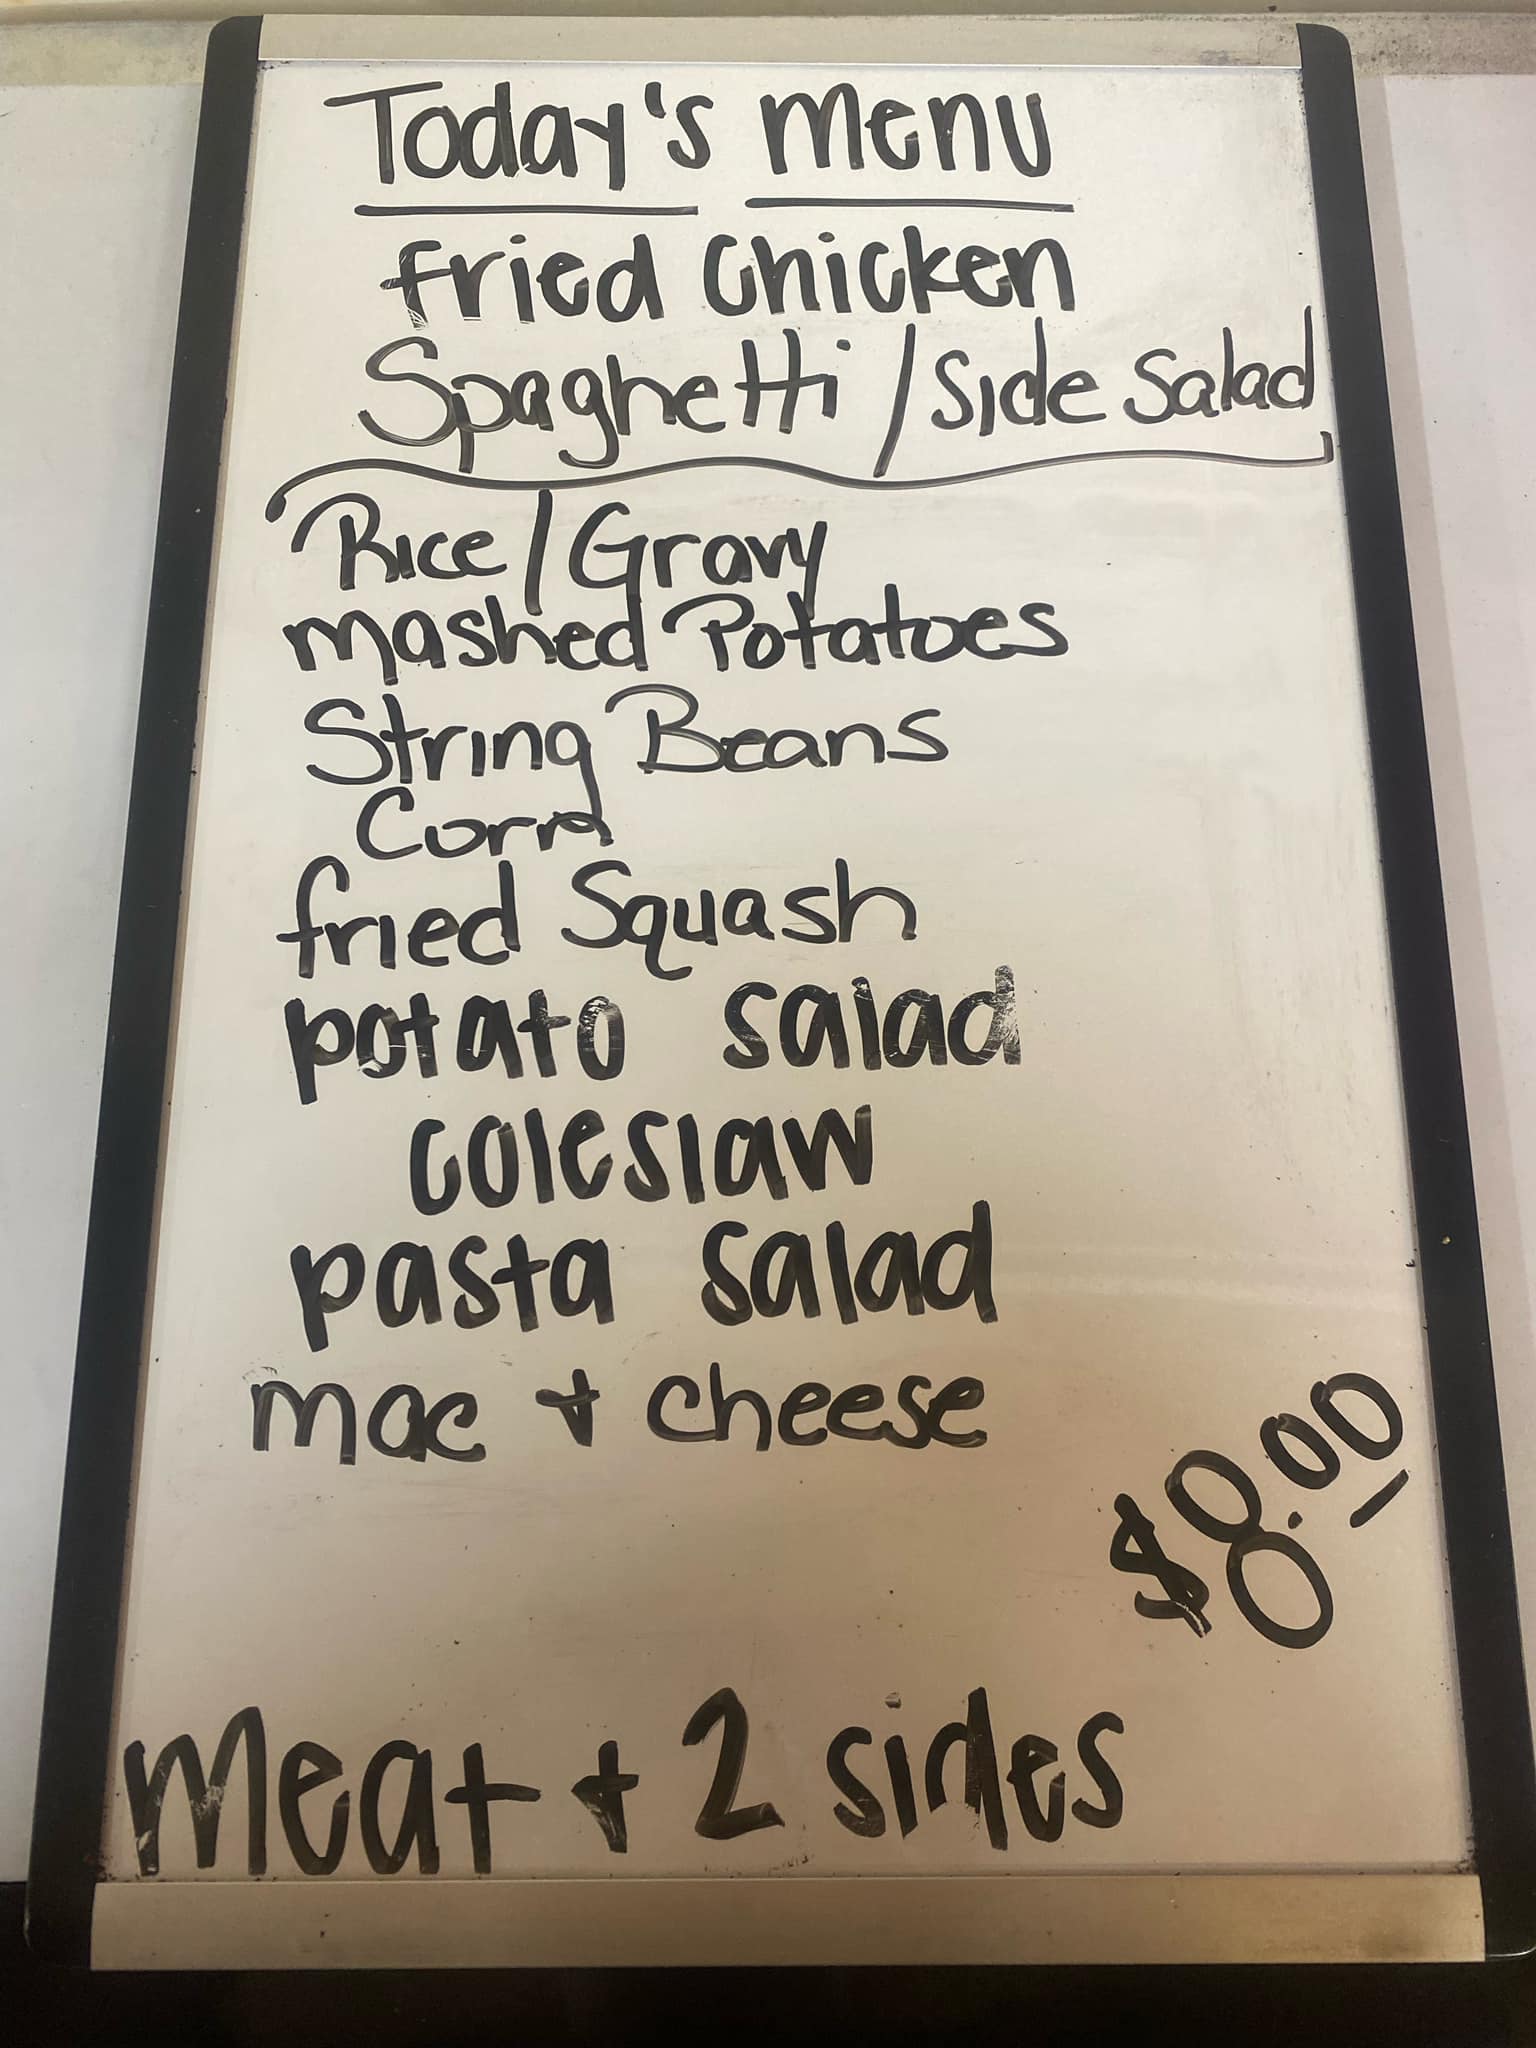 Today's menu
fried chicken
Spaghetti / Side Salad
Rice / Gravy
mashed Potatoes
String Beans
Corn
fried Squash
potato salad
coleslaw
pasta salad
mac + cheese
$8.00
meat + 2 sides